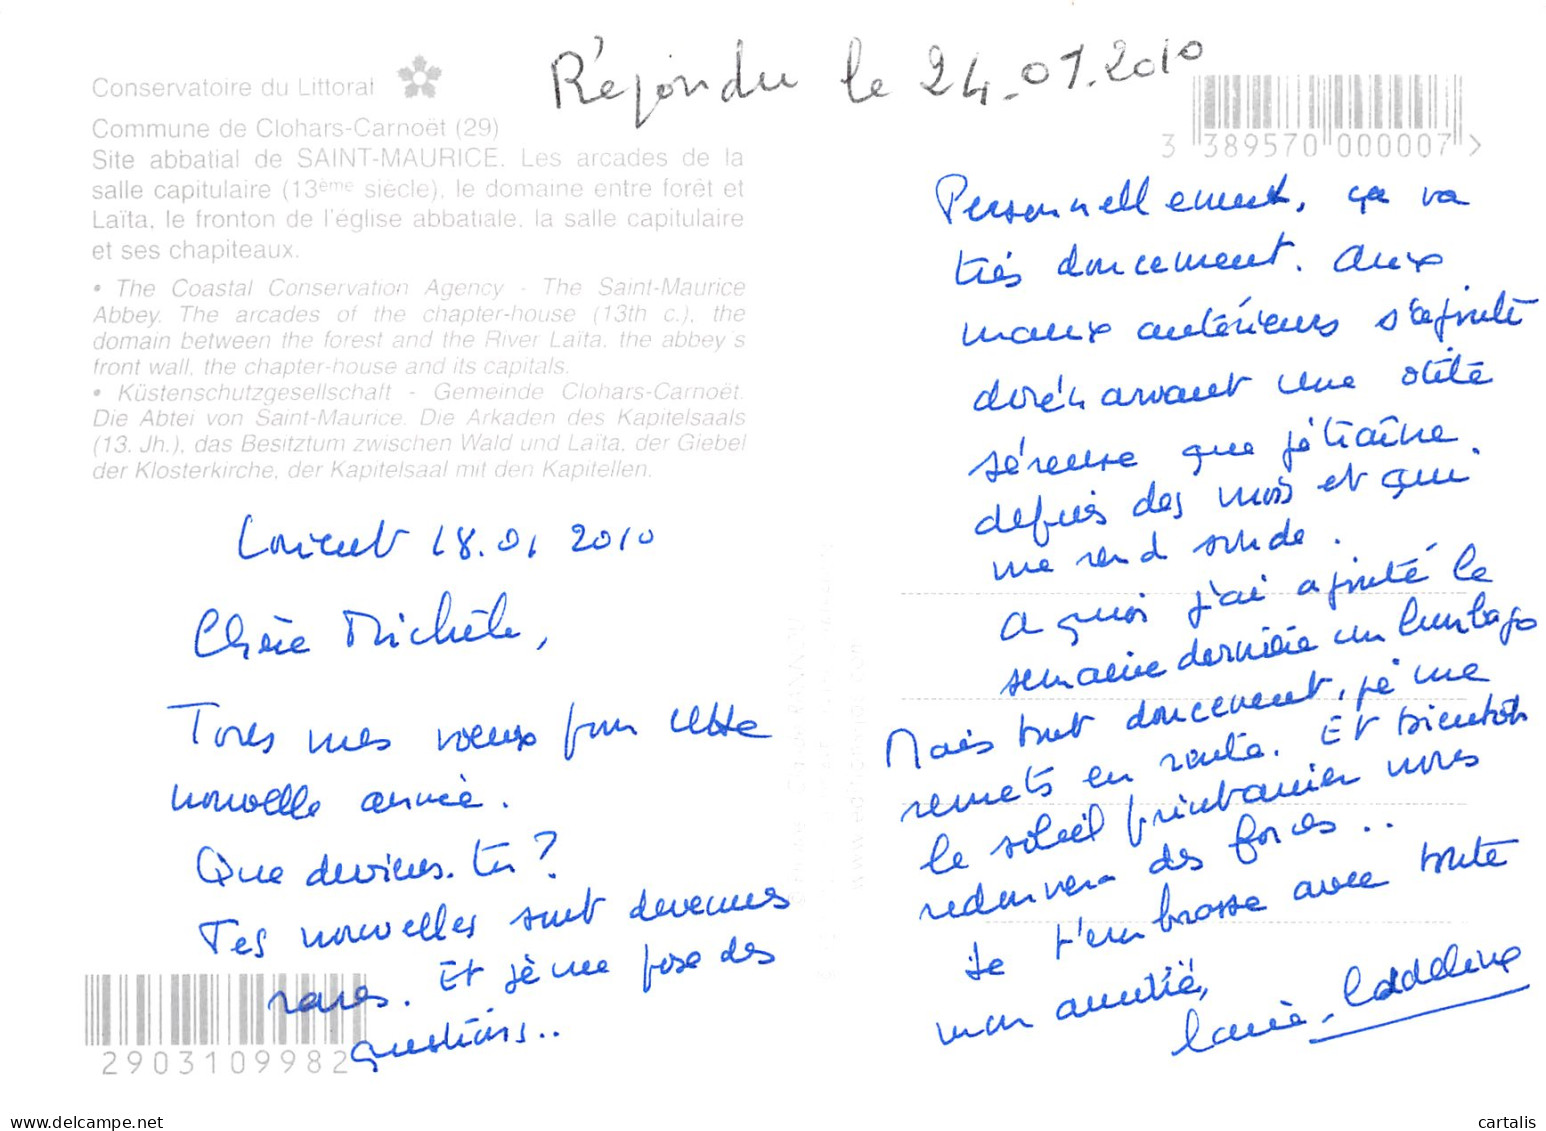 Répondu le 24.01.2010
Conservatoire du Littoral
Commune de Clohars-Carnoët (29)
Site abbatial de SAINT-MAURICE. Les arcades de la
salle capitulaire (13ème siècle), le domaine entre forêt et
Laïta, le fronton de l'église abbatiale, la salle capitulaire
et ses chapiteaux.
• The Coastal Conservation Agency - The Saint-Maurice
Abbey. The arcades of the chapter-house (13th c.), the
domain between the forest and the River Laïta, the abbey's
front wall, the chapter-house and its capitals.
• Küstenschutzgesellschaft - Gemeinde Clohars-Carnoët.
Die Abtei von Saint-Maurice. Die Arkaden des Kapitelsaals
(13. Jh.), das Besitztum zwischen Wald und Laïta, der Giebel
der Klosterkirche, der Kapitelsaal mit den Kapitellen.
Lorient 18.01 2010
Chère Michèle,
Tous mes vœux pour cette
nouvelle année.
Que deviens-tu ?
Tes nouvelles sont devenues
rares. Et je me pose des
questions..
2903109982
3 389570 000007 >
Personnellement, ça va
très doucement. Aux
maux antérieurs s'ajoute
dorénavant une otite
séreuse que je traîne
depuis des mois et qui
me rend sourde.
A quoi j'ai ajouté la
semaine dernière un lumbago
Mais tout doucement, je me
remets en route. Et bientôt
le soleil printanier nous
redonnera des forces..
Je t'embrasse avec toute
mon amitié,
cartalis